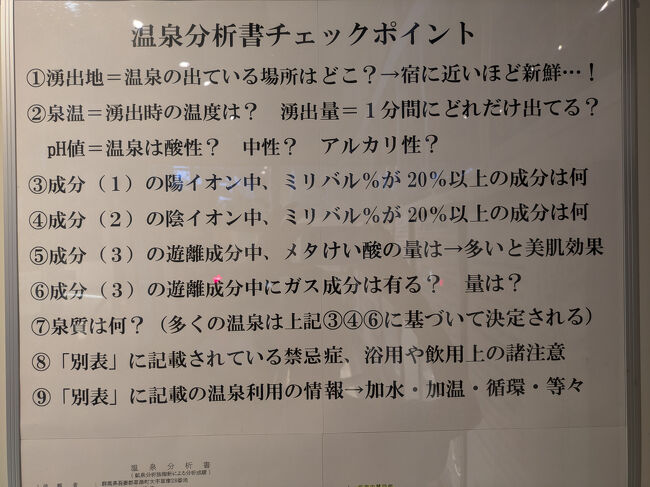 温泉分析書チェックポイント
①湧出地＝温泉の出ている場所はどこ？→宿に近いほど新鮮…！
②泉温＝湧出時の温度は？　湧出量＝１分間にどれだけ出てる？
pH値＝温泉は酸性？　中性？　アルカリ性？
③成分（１）の陽イオン中、ミリバル％が 20％以上の成分は何
④成分（２）の陰イオン中、ミリバル％が 20％以上の成分は何
⑤成分（３）の遊離成分中、メタけい酸の量は→多いと美肌効果
⑥成分（３）の遊離成分中にガス成分は有る？　量は？
⑦泉質は何？（多くの温泉は上記③④⑥に基づいて決定される）
⑧「別表」に記載されている禁忌症、浴用や飲用上の諸注意
⑨「別表」に記載の温泉利用の情報→加水・加温・循環・等々
温泉分析書